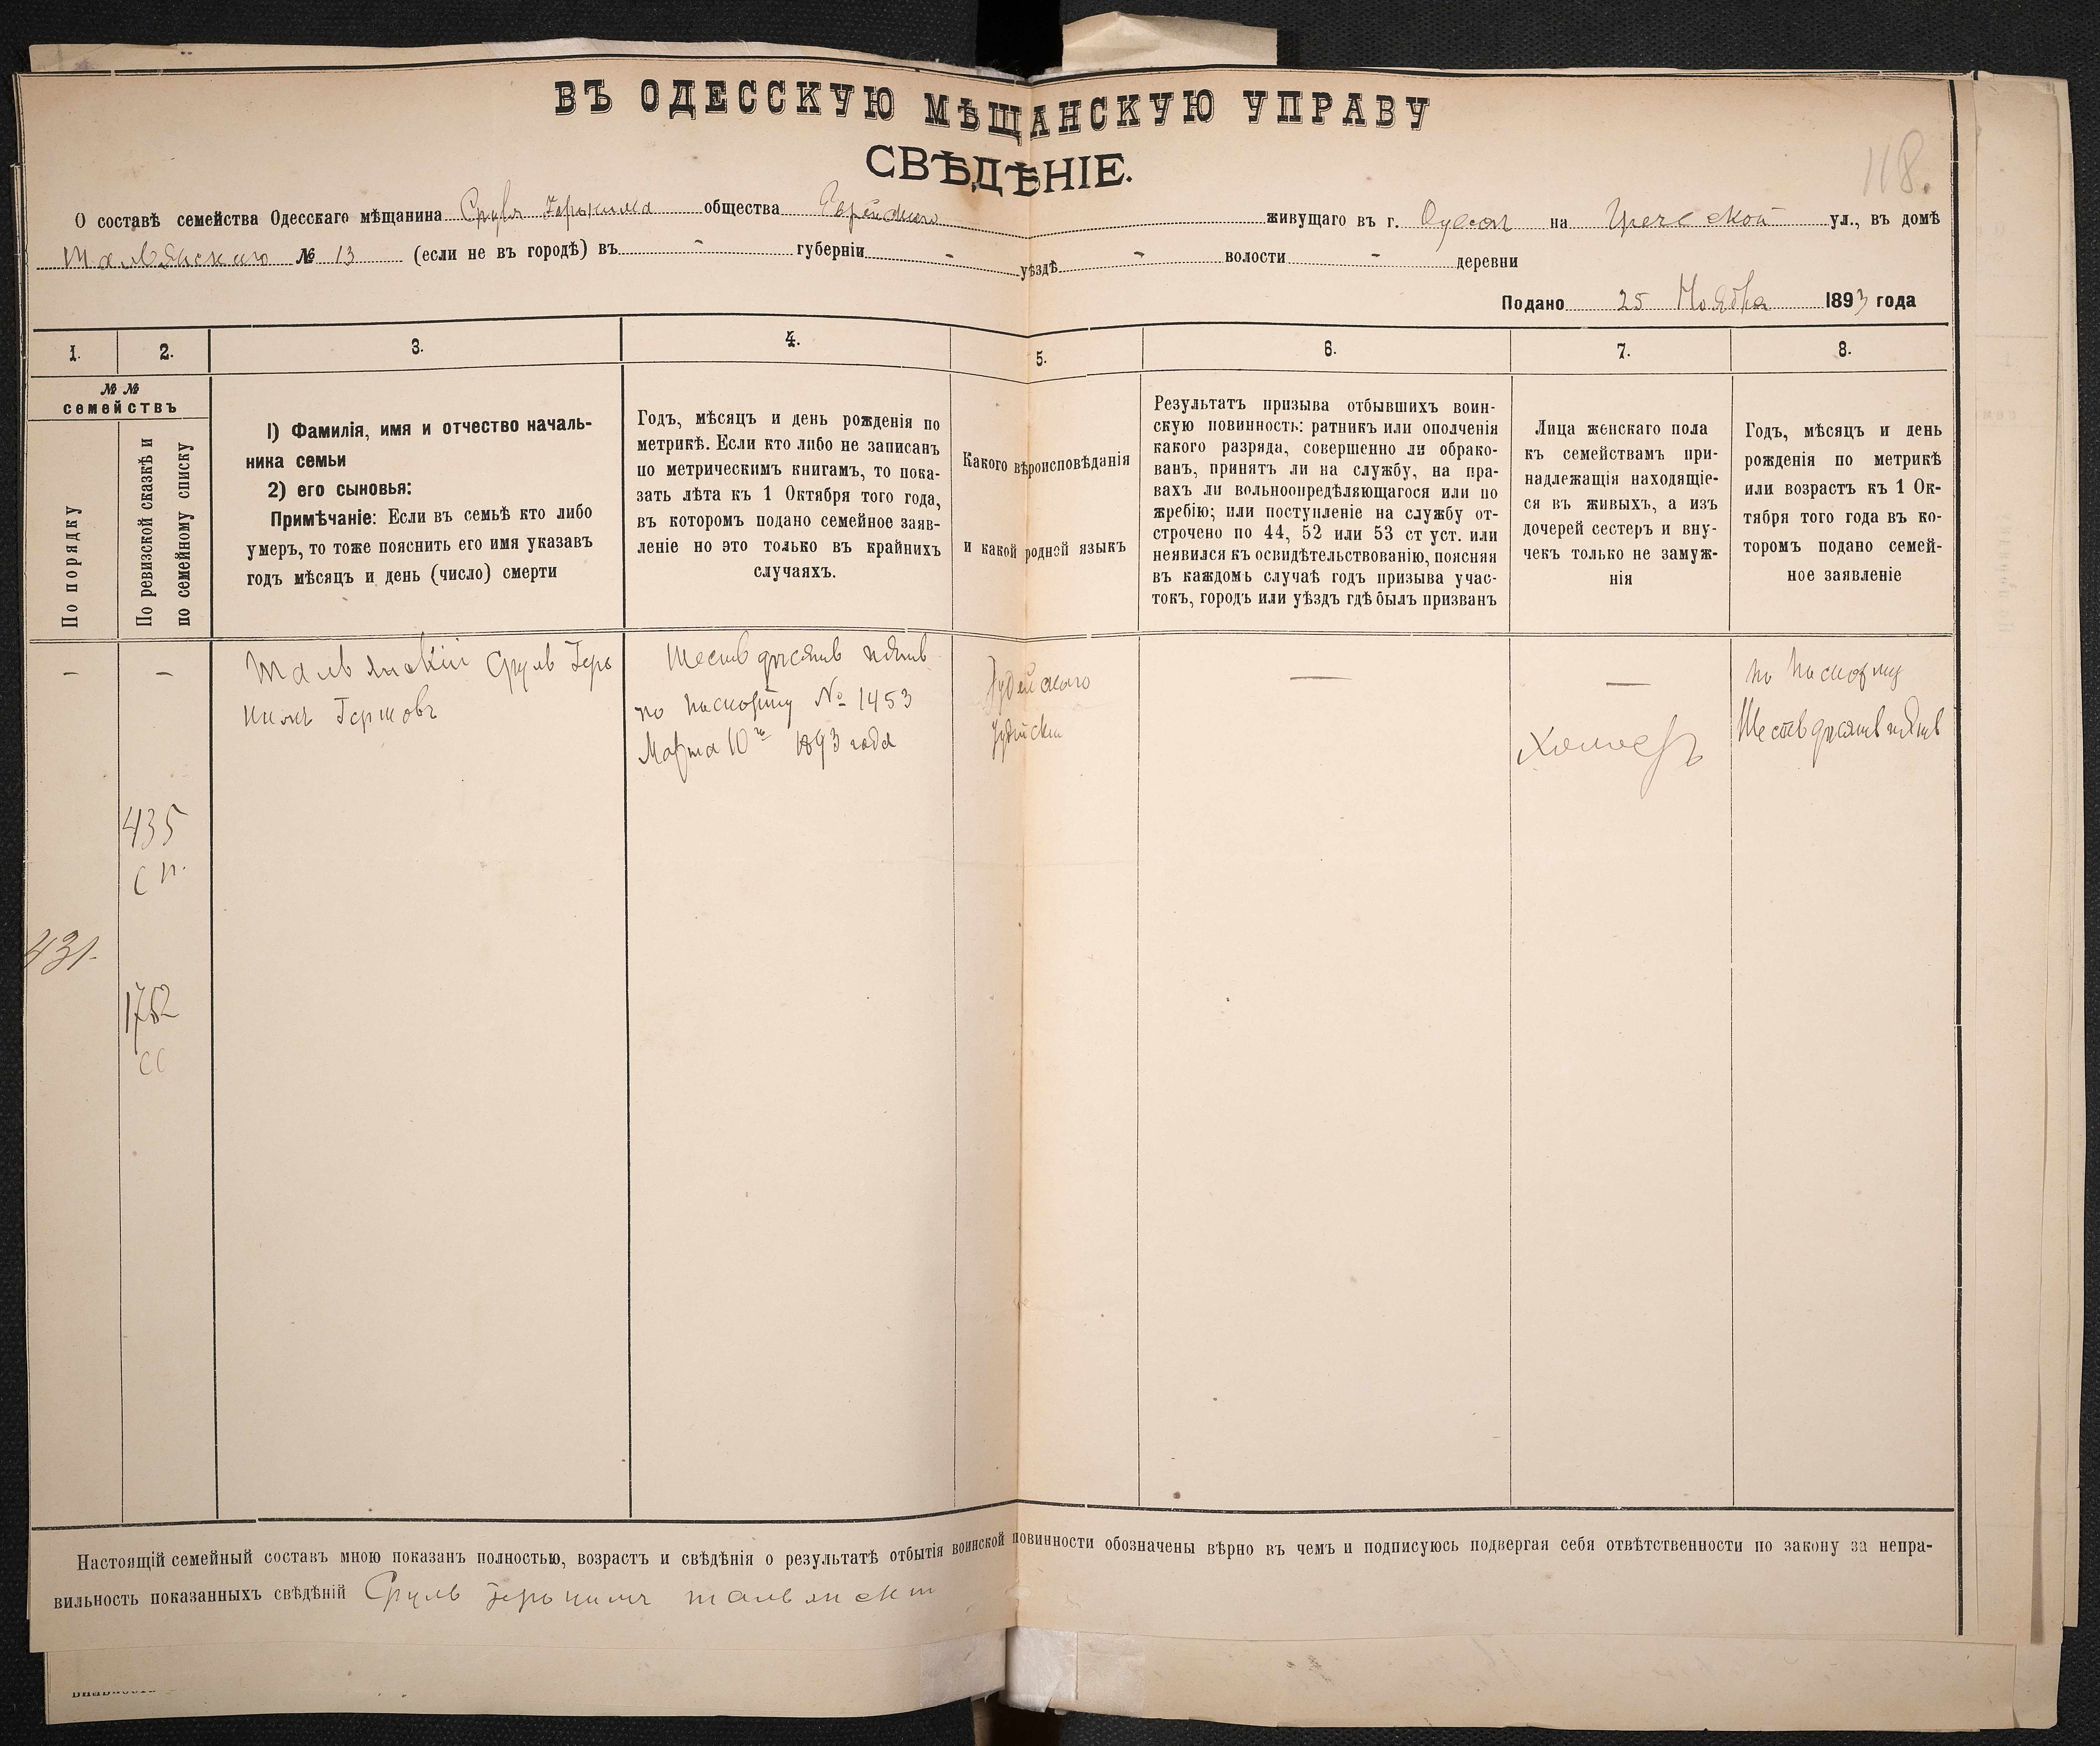 ВЪ ОДЕССКУЮ МѢЩАНСКУЮ УПРАВУ
СВѢДѢНІЕ.
118.
О составѣ семейства Одесскаго мѣщанина Сруля общества Еврейскаго живущаго въ г. Одессѣ на Греческой ул., въ домѣ
Тальянскаго № 13 (если не въ городѣ) въ - губерніи - уѣздѣ - волости - деревни
Подано 25 Ноября 1893 года
1. 2. 3. 4. 5. 6. 7. 8.
№ №
семействъ
По порядку
По ревизской сказкѣ и
по семейному списку
1) Фамилія, имя и отчество началь-
ника семьи
2) его сыновья:
Примѣчаніе: Если въ семьѣ кто либо
умеръ, то тоже пояснить его имя указавъ
годъ мѣсяцъ и день (число) смерти
Годъ, мѣсяцъ и день рожденія по
метрикѣ. Если кто либо не записанъ
по метрическимъ книгамъ, то пока-
зать лѣта къ 1 Октября того года,
въ которомъ подано семейное заяв-
леніе но это только въ крайнихъ
случаяхъ.
Какого вѣроисповѣданія
и какой родной языкъ
Результатъ призыва отбывшихъ воин-
скую повинность: ратникъ или ополченія
какого разряда, совершенно ли обрако-
ванъ, принятъ ли на службу, на пра-
вахъ ли вольноопредѣляющагося или по
жребію; или поступленіе на службу от-
строчено по 44, 52 или 53 ст уст. или
неявился къ освидѣтельствованію, поясняя
въ каждомъ случаѣ годъ призыва учас-
токъ, городъ или уѣздъ гдѣ былъ призванъ
Лица женскаго пола
къ семействамъ при-
надлежащія находящіе-
ся въ живыхъ, а изъ
дочерей сестеръ и вну-
чекъ только не замуж-
нія
Годъ, мѣсяцъ и день
рожденія по метрикѣ
или возрастъ къ 1 Ок-
тября того года въ ко-
торомъ подано семей-
ное заявленіе
— — Тальянскій Сруль Геръ
Гершовъ
Шестьдесятъ пять
по паспорту № 1453
Марта 10го 1893 года
Іудейскаго
—
—
по паспорту
Шестьдесятъ пять
435
сп.
431.
1752
сс
Настоящій семейный составъ мною показанъ полностью, возрастъ и свѣдѣнія о результатѣ отбытія воинской повинности обозначены вѣрно въ чемъ и подписуюсь подвергая себя отвѣтственности по закону за непра-
вильность показанныхъ свѣдѣній Сруль тальянски